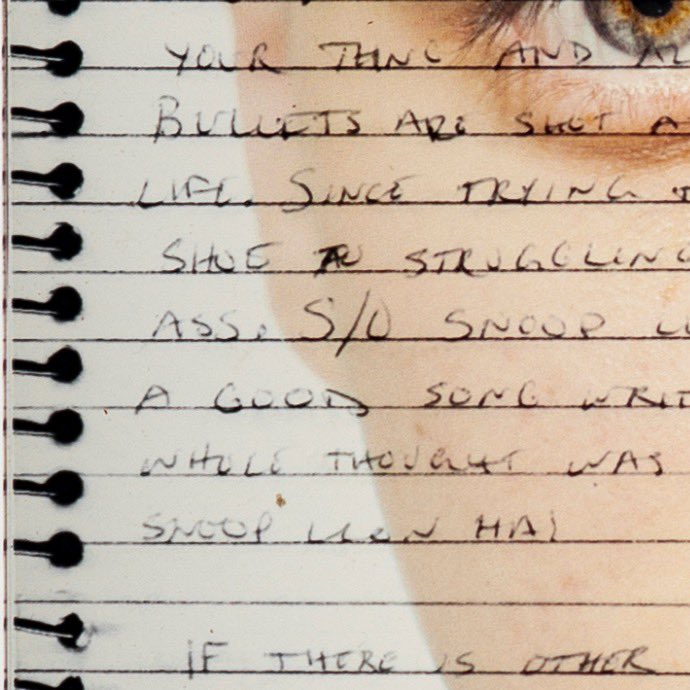 YOUR THNG AND AL
BULLETS ARE SHOT A
LIFE. SINCE TRYING T
SHOE TO STRUGGLING
ASS. S/O SNOOP L
A GOOD SONG WRIT
WHOLE THOUGHT WAS
SNOOP LION HA!
IF THERE IS OTHER